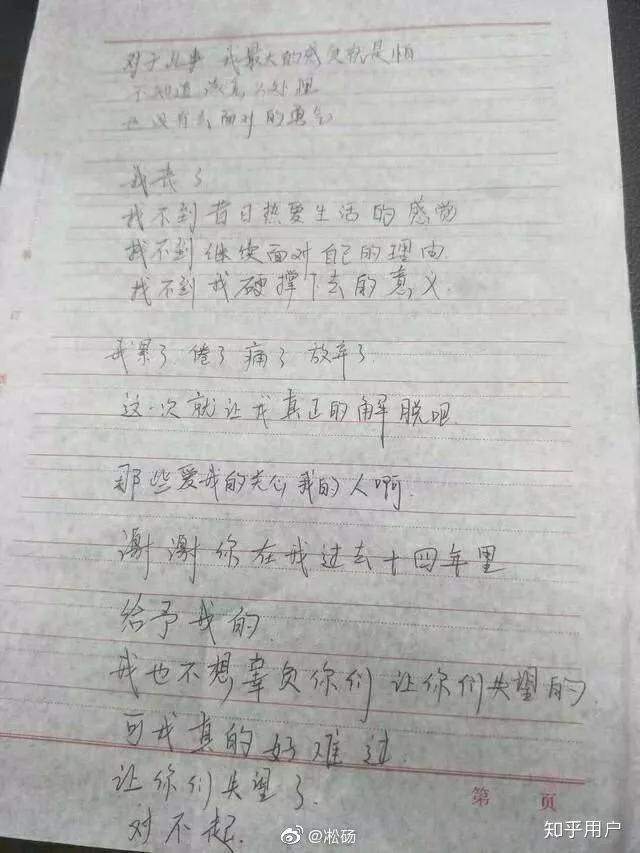 对于此事 我最大的感觉就是怕
不知道该怎么处理
也没有去面对的勇气
我丧了
找不到昔日热爱生活的感觉
找不到继续面对自己的理由
找不到我硬撑下去的意义.
我累了 倦了 痛了 放弃了.
这一次就让我真正的解脱吧.
那些爱我的关心我的人啊.
谢谢你在我过去十四年里
给予我的.
我也不想辜负你们 让你们失望的.
可我真的好难过.
让你们失望了.
对不起.
第 页
知乎用户
@凇砀